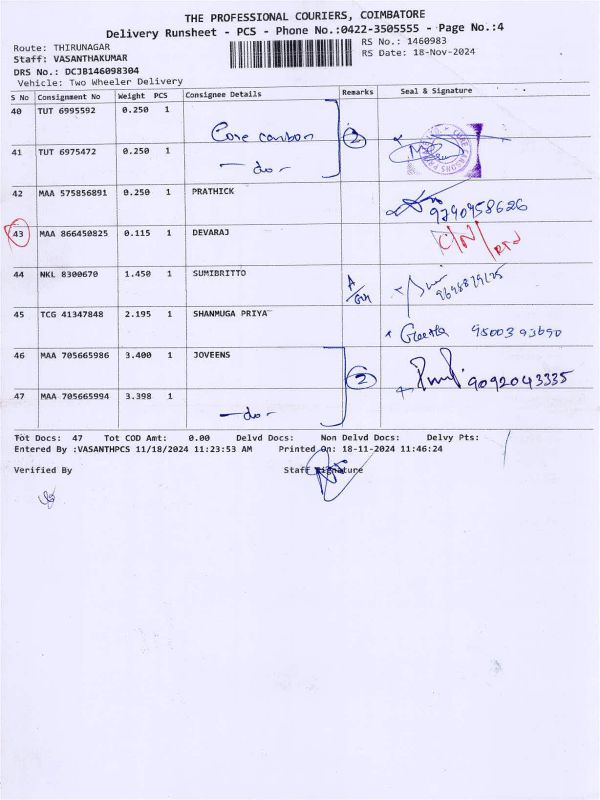 THE PROFESSIONAL COURIERS, COIMBATORE
Delivery Runsheet - PCS - Phone No.:0422-3505555 - Page No.:4
Route: THIRUNAGAR
RS No.: 1460983
Staff: VASANTHAKUMAR
RS Date: 18-Nov-2024
DRS No.: DCJB146098304
Vehicle: Two Wheeler Delivery
S No Consignment No Weight PCS Consignee Details Remarks Seal & Signature
40 TUT 6995592 0.250 1
Core carbon 2
41 TUT 6975472 0.250 1
- do -
42 MAA 575856891 0.250 1 PRATHICK
9790958626
43 MAA 866450825 0.115 1 DEVARAJ C/N/RTN
44 NKL 8300670 1.450 1 SUMIBRITTO
45 TCG 41347848 2.195 1 SHANMUGA PRIYA
Geetha 95003 93690
46 MAA 705665986 3.400 1 JOVEENS
2 9092043335
47 MAA 705665994 3.398 1
- do -
Tot Docs: 47 Tot COD Amt: 0.00 Delvd Docs: Non Delvd Docs: Delvy Pts:
Entered By :VASANTHPCS 11/18/2024 11:23:53 AM Printed On: 18-11-2024 11:46:24
Verified By Staff Signature